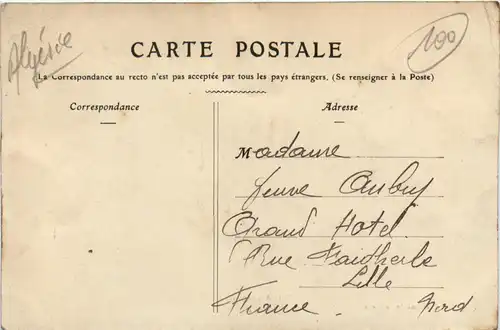 Algérie
100
CARTE POSTALE
La Correspondance au recto n'est pas acceptée par tous les pays étrangers. (Se renseigner à la Poste)
Correspondance
Adresse
Madame
Grand Hotel
Rue Faidherbe
Lille
France. Nord